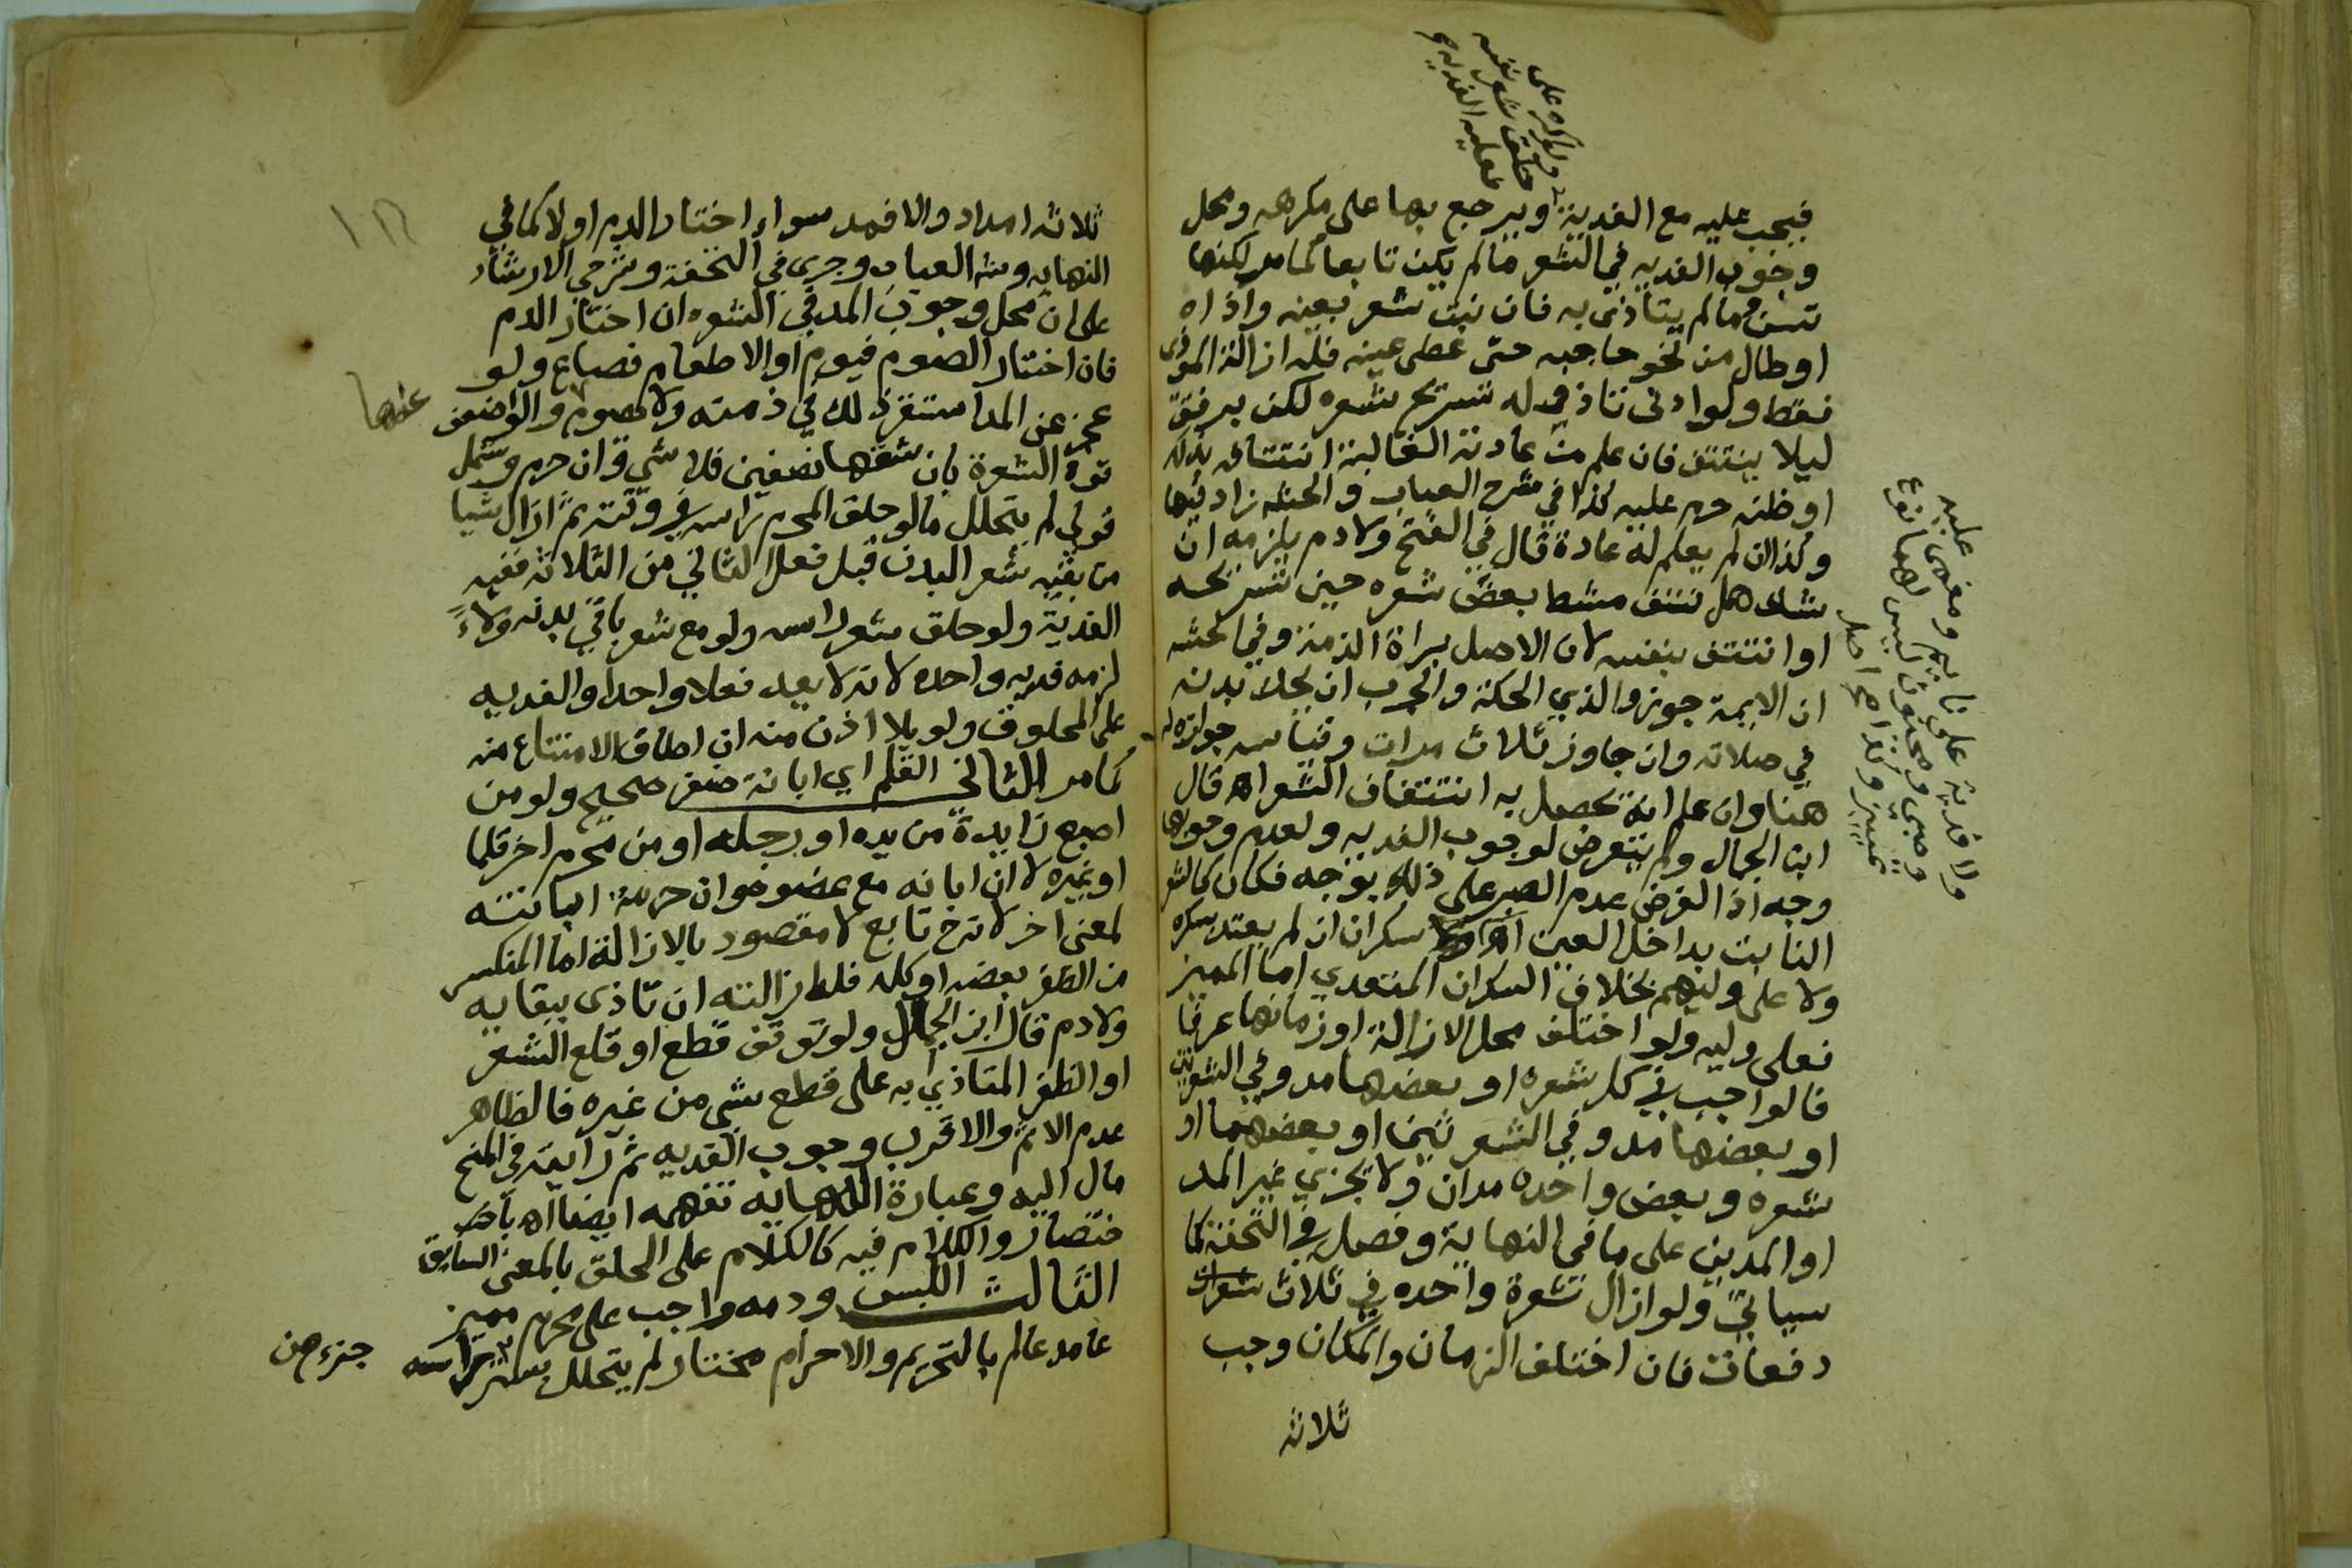 ولو اكره على
حلق شعر نفسه
فعليه الفديه
فيجب عليه مع الفدية ويرجع بها على مكرهه ومحل
وجوب الفديه في الشعر مالم يكن تابعا كما مر لكنها
تسن ومالم يتاذى به فان نبت شعر بعينه واذاه
او طال من نحو حاجبه حتى غطى عينه فله ازالة الموذي
فقط ولو ادنى تاذ وله تسريح شعره لكن برفق
ليلا ينتتف فان علم من عادته الغالبة انتتافه بذلك
او ظنه حرم عليه كذا في شرح العباب والحشه زاد فيها
وكذا ان لم يعلم له عادة قال في الفتح ولا دم يلزمه ان
شك هل نتف مشط بعض شعره حين تسريحه
او انتتف بنفسه لان الاصل براة الذمة وفي الحشه
ان الايمة جوزوا لذي الحكة والجرب ان يحك بدنه
في صلاته وان جاوز ثلاث مرات وقياسه جوازه
هنا وان علم انه يحصل به انتتاف الشعر اه قال
ابن الجمال ولم يتعرض لوجوب الفديه ولعدم وجوبها
وجه اذ الفرض عدم الصبر على ذلك بوجه فكان كالشعر
النابت بداخل العين سكران ان لم يعتد بسكره
ولا على وليهم بخلاف السكران المتعدي اما المميز
فعلى وليه ولو اختلف محل الازالة او زمانها عرفا
فالواجب في كل شعره او بعضها مد وفي الشعرتين
او بعضها مد وفي الشعرتين او بعضهما او
شعره وبعض واحده مدان ولا يجزي غير المد
او المدين على ما في النهاية وفصل في التحفة كما
سياتي ولو ازال شعرة واحده في ثلاث شعرات
دفعات فان اختلف الزمان والمكان وجب
ثلاثة
ولا فدية على نايم ومغمى عليه
وصبي ومجنون ليس لهما نوع
تمييز وكذا مع اصل
ثلاثة امداد والا فمد سواء اختار الدم اولا كما في
النهايه وشه العباب وجرى في التحفة وشرحي الارشاد
على ان محل وجوب المد في الشعره ان اختار الدم
فان اختار الصوم فيوم او الاطعام فصاع ولو
عجز عن المد استقر ذلك في ذمته ولا يصوم ولو اضعف
عنها
قوة الشعرة بان شقها نصفين فلا شي وان حرم وشمل
قولي لم يتحلل مالو حلق المحرم راسه في وقته ثم ازال شيا
من بقيه شعر البدن قبل فعل الثاني من الثلاثه ففيه
الفدية ولو حلق شعر راسه ولو مع شعر باقي بدنه ولاءً
لزمه فديه واحده لانه لا يعد فعلا واحدا والفديه
على المحلوق ولو بلا اذن منه ان اطاق الامتناع منه
كما مر الثاني القلم اي ابانة ظفر صحيح ولو من
اصبع زايدة من يده او رجله او من محرم اخر قلما
او غيره لا ان ابانه مع عضو وان حرمة ابانته
لمعنى اخر لانه ح تابع لا مقصود بالازالة اما المنكسر
من الظفر بعضه او كله فله ازالته ان تاذى ببقايه
ولا دم قال ابن الجمال ولو توقف قطع او قلع الشعر
او الظفر المتاذي به على قطع شي من غيره فالظاهر
عدم الاثم والاقرب وجوب الفديه ثم رايته في المنح
مال اليه وعبارة النهايه تفهمه ايضا اه باخـ
ختصار والكلام فيه كالكلام على الحلق بالمعنى السابق
الثالث اللبس ودمه واجب على محرم مميز
عامد عالم بالتحريم والاحرام مختار لم يتحلل ستر راسه
جزء من